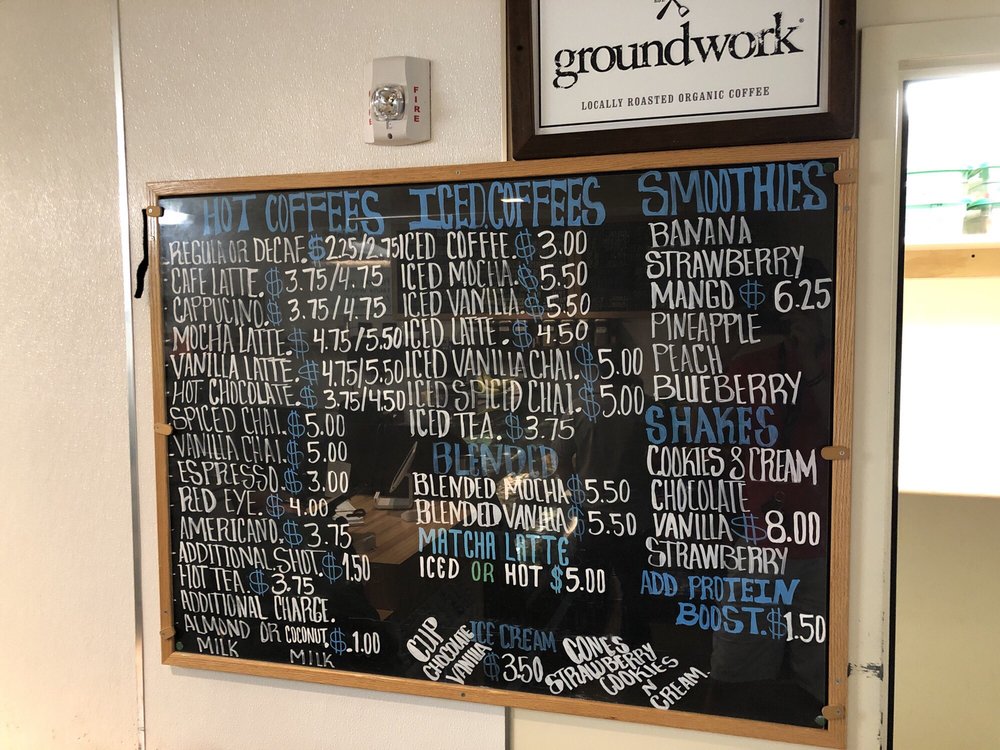 groundwork
LOCALLY ROASTED ORGANIC COFFEE
FIRE
HOT COFFEES
REGULA OR DECAF. $2.25/2.75
CAFE LATTE. $3.75/4.75
CAPPUCINO. $3.75/4.75
MOCHA LATTE. $4.75/5.50
VANILLA LATTE. $4.75/5.50
HOT CHOCOLATE. $3.75/4.50
SPICED CHAI. $5.00
VANILLA CHAI. $5.00
ESPRESSO. $3.00
RED EYE. $4.00
AMERICANO. $3.75
ADDITIONAL SHOT. $1.50
HOT TEA. $3.75
ADDITIONAL CHARGE.
ALMOND OR COCONUT. $1.00
MILK MILK
ICED COFFEES
ICED COFFEE. $3.00
ICED MOCHA. $5.50
ICED VANILLA. $5.50
ICED LATTE. $4.50
ICED VANILLA CHAI. $5.00
ICED SPICED CHAI. $5.00
ICED TEA. $3.75
BLENDED
BLENDED MOCHA $5.50
BLENDED VANILLA $5.50
MATCHA LATTE
ICED OR HOT $5.00
ICE CREAM
CUP
CHOCOLATE
VANILLA
$3.50
CONES
STRAWBERRY
COOKIES
N
CREAM.
SMOOTHIES
BANANA
STRAWBERRY
MANGO $6.25
PINEAPPLE
PEACH
BLUEBERRY
SHAKES
COOKIES & CREAM
CHOCOLATE
VANILLA $8.00
STRAWBERRY
ADD PROTEIN
BOOST. $1.50